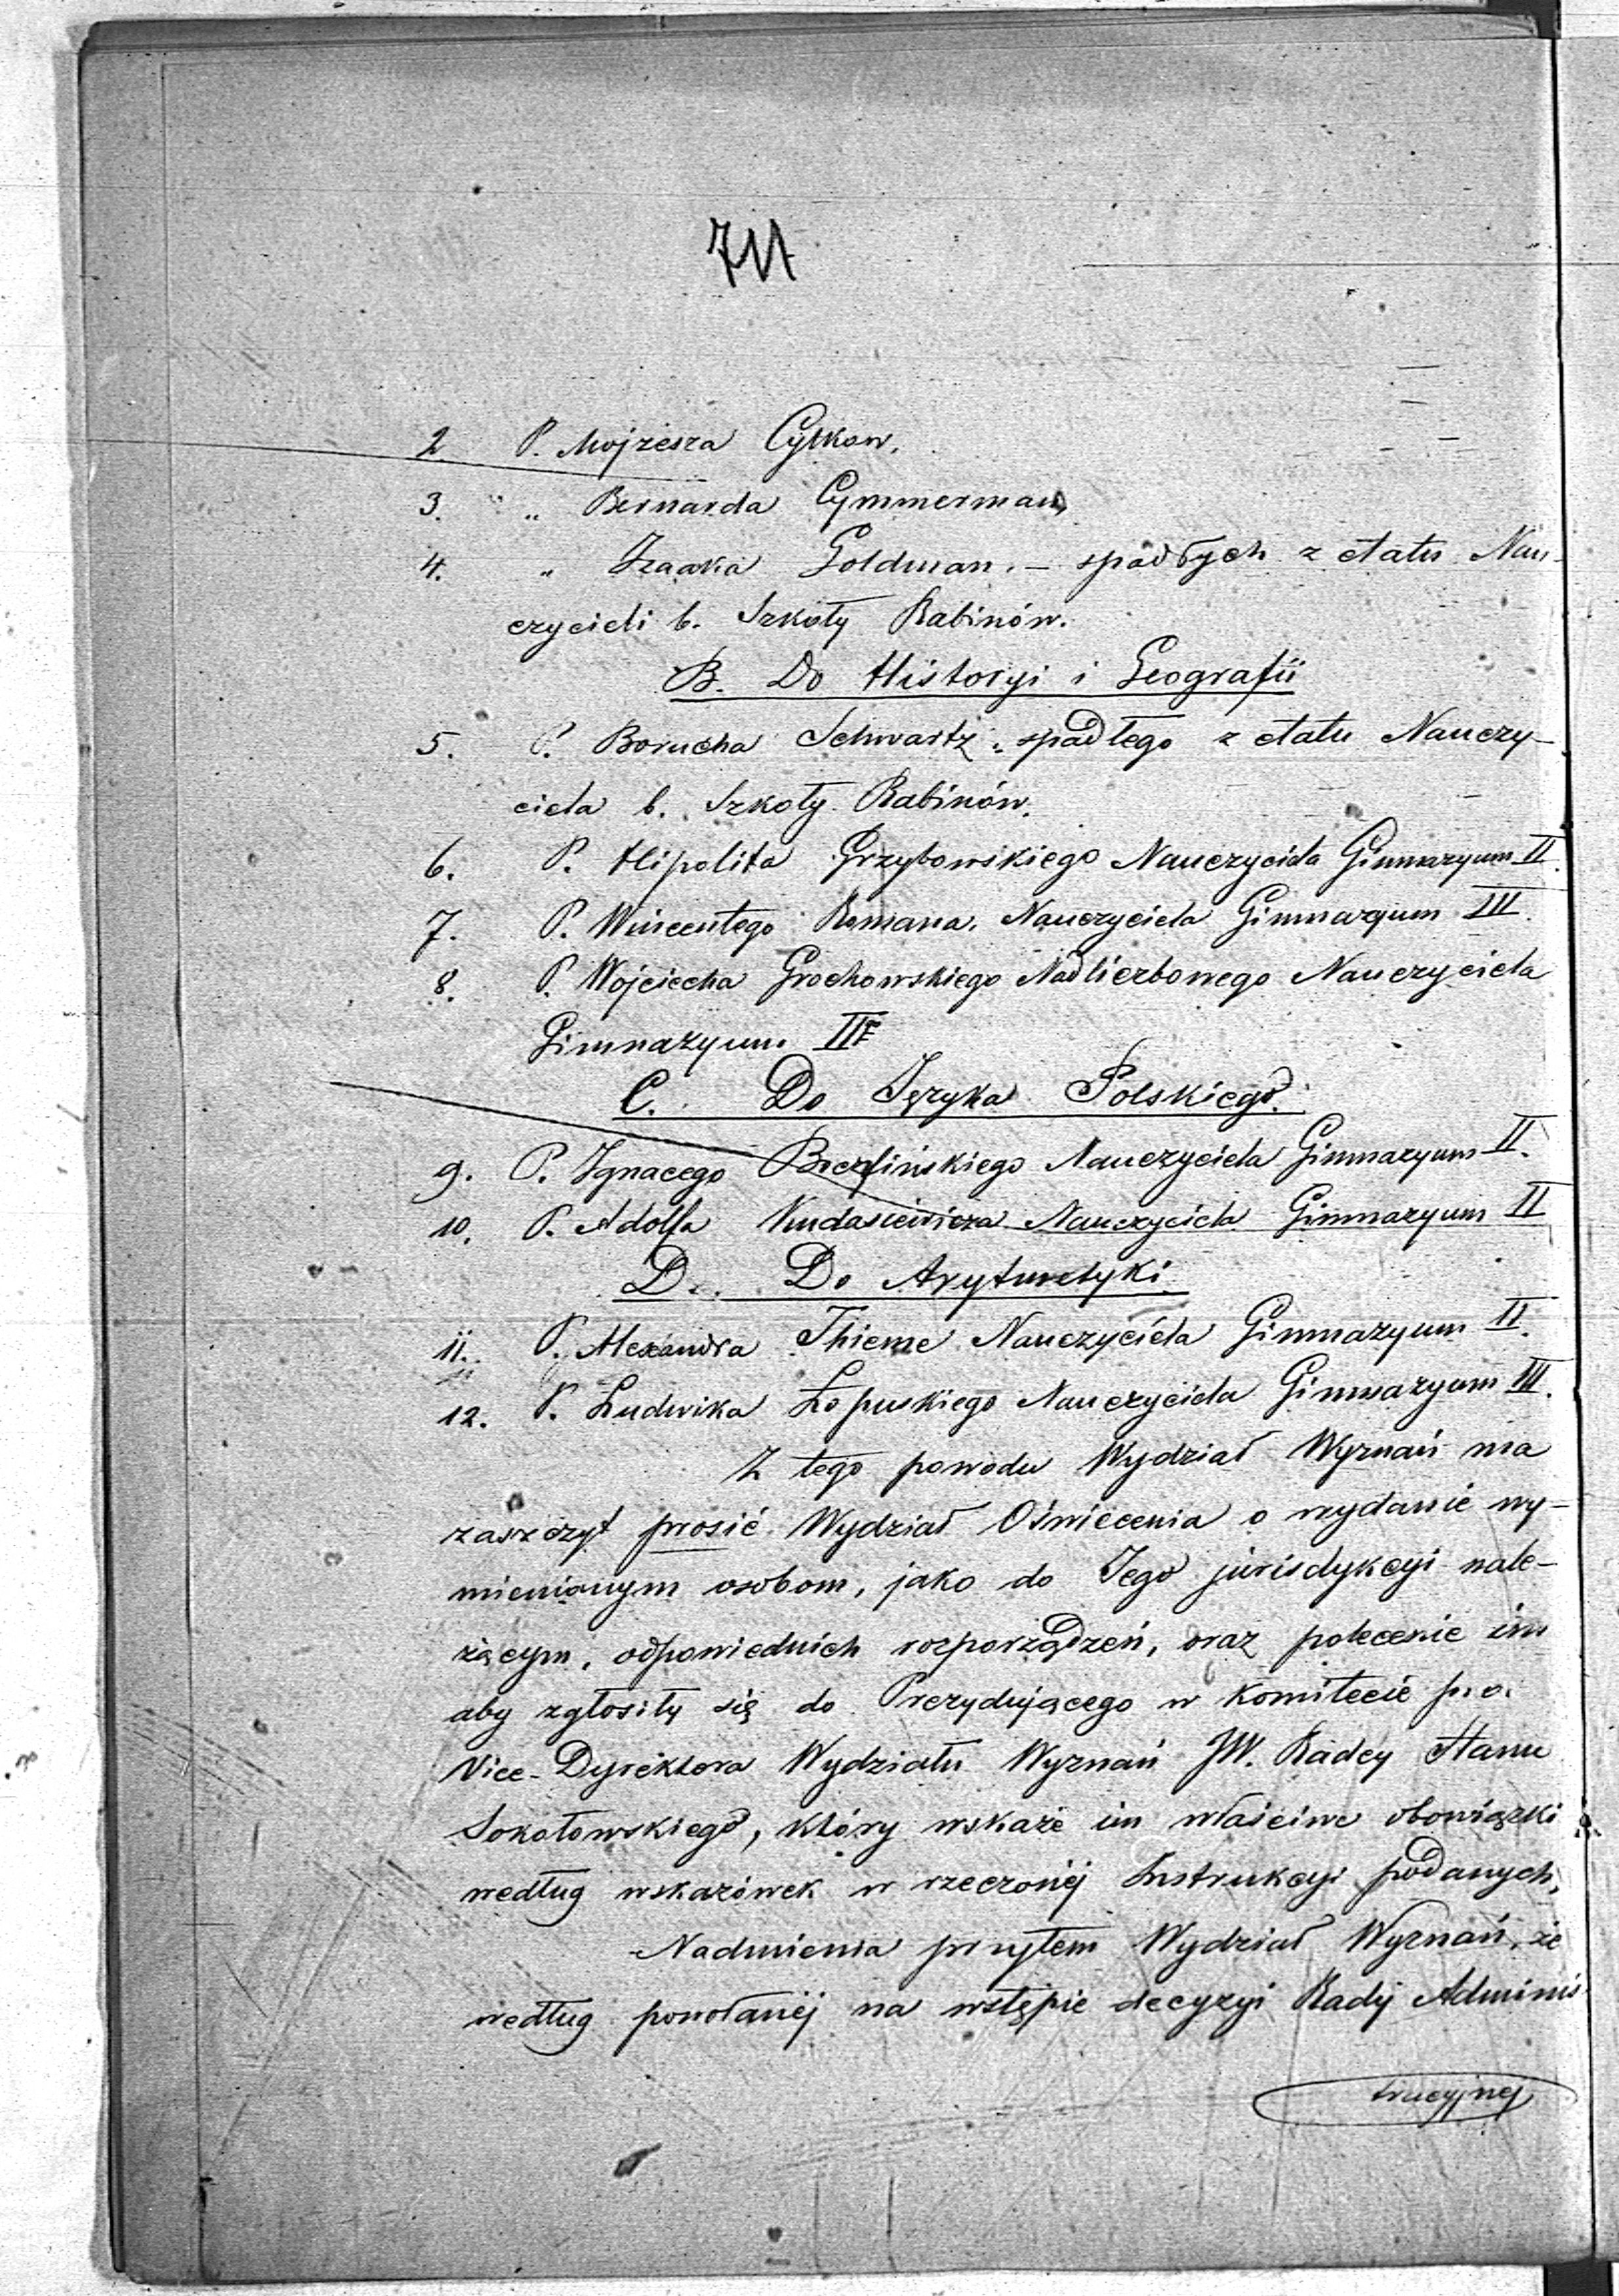 711
2. P. Mojżesza Cylkow,
3. „ Bernarda Cymmerman,
4. „ Izaaka Goldman. – spadłych z etatu Nau-
czycieli b. Szkoły Rabinów.
B. Do Historyi i Geografii
5. P. Borucha Schwartz „ spadłego z etatu Nauczy-
ciela b. Szkoły Rabinów.
6. P. Hipolita Grzybowskiego Nauczyciela Gimnazyum II.
7. P. Wincentego Romana. Nauczyciela Gimnazyum III.
8. P. Wojciecha Grochowskiego Nadliczbowego Nauczyciela
Gimnazyum III
C. Do Języka Polskiego.
9. P. Ignacego Nauczyciela Gimnazyum II.
10. P. Adolfa Kudasiewicza Nauczyciela Gimnazyum II
D. Do Arytmetyki.
11. P. Alexandra Thieme Nauczyciela Gimnazyum II.
12. P. Ludwika Łopuskiego Nauczyciela Gimnazyum III.
Z tego powodu Wydział Wyznań ma
zaszczyt prosić Wydział Oświecenia o wydanie wy-
mienionym osobom, jako do Jego jurisdykcyi nale-
żącym, odpowiednich rozporządzeń, oraz polecenie im
aby zgłosiły się do Prezydującego w Komitecie p.o.
Vice-Dyrektora Wydziału Wyznań JW. Radcy Stanu
Sokołowskiego, który wskaże im właściwe obowiązki
według wskazówek w rzeczonéj Instrukcyi podanych.
Nadmienia przytem Wydział Wyznań, że
według powołanéj na wstępie decyzyi Rady Adminis-
tracyjnej